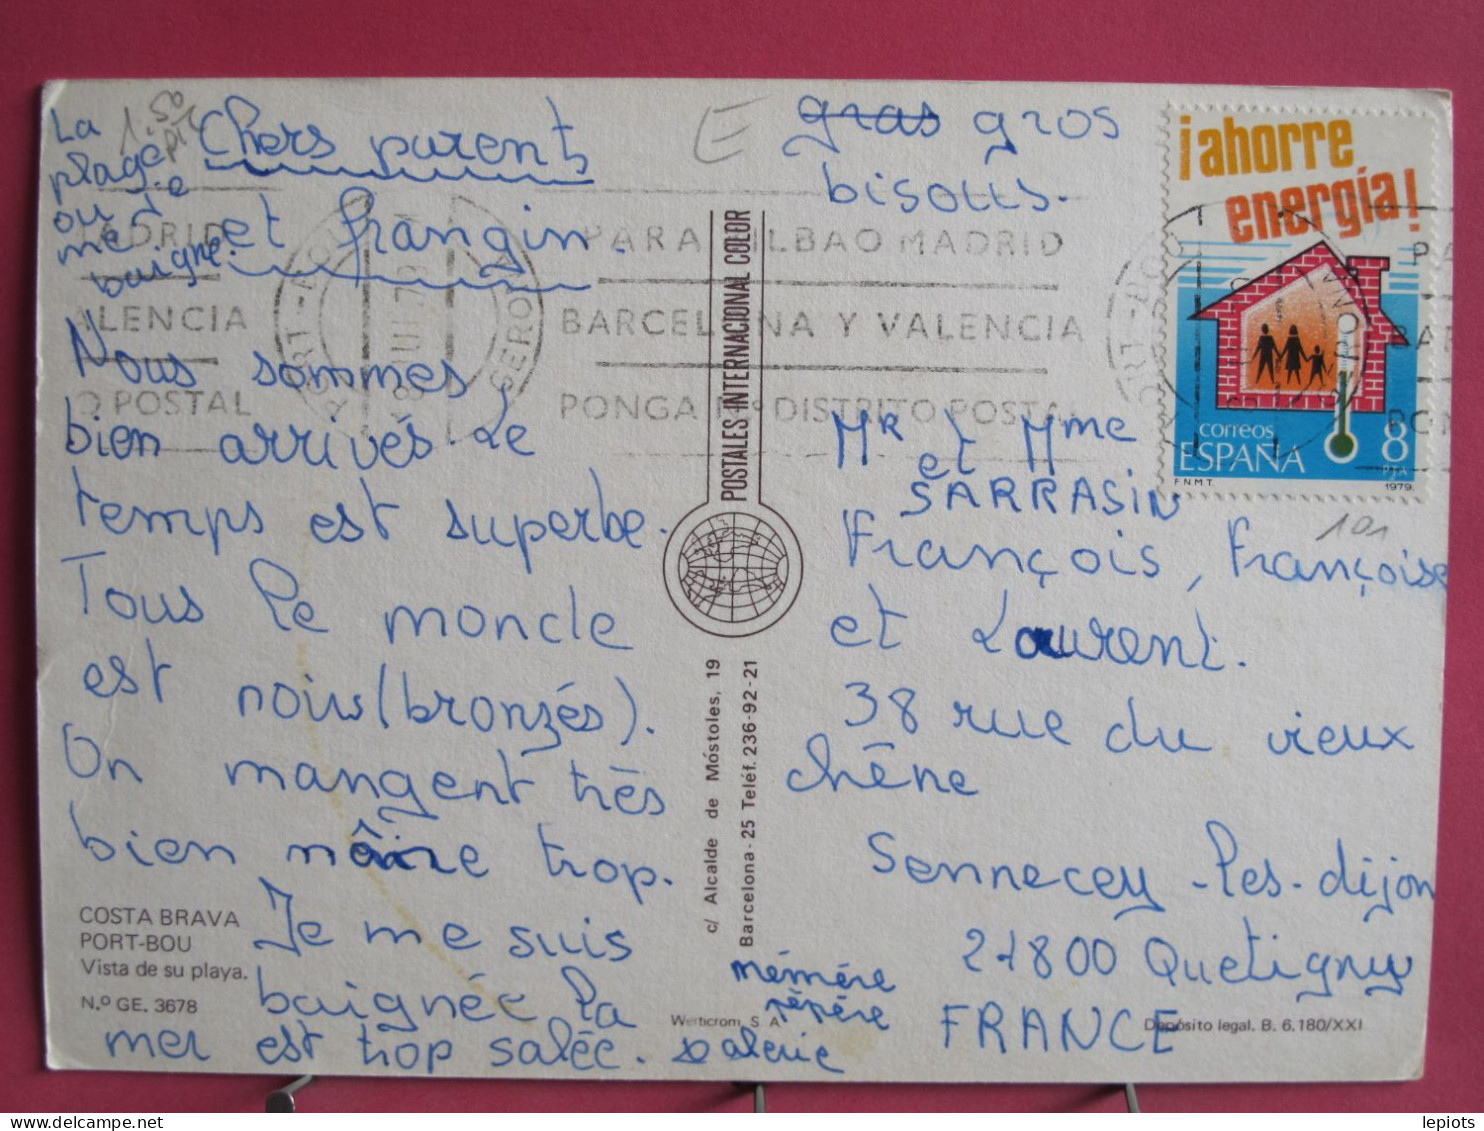 La
plage
où je
me
baigne.
1.50
Chers parents
et frangin.
Nous sommes
bien arrivés Le
temps est superbe.
Tous le monde
est noirs (bronzés).
On mangent très
bien même trop.
Je me suis
baignée la
mer est trop salée.
mémére
pépére
Valerie
E
gras gros
bisous.
Mr et Mme
SARRASIN
François, Françoise
et Laurent.
38 rue du vieux
chêne
Sennecey-les-dijon
21800 Quetigny
FRANCE
101
¡ahorre
energía!
correos
ESPAÑA 8
PTA
F.N.M.T. 1979.
MADRID
VALENCIA
O POSTAL
PORT-BOU
PARA BILBAO MADRID
BARCELONA Y VALENCIA
PONGA Nº DISTRITO POSTAL
PORT-BOU
PA
BAR
PON
POSTALES INTERNACIONAL COLOR
c/ Alcalde de Móstoles, 19
Barcelona-25 Teléf. 236-92-21
COSTA BRAVA
PORT-BOU
Vista de su playa.
N.º GE. 3678
Werticrom, S. A.
Depósito legal. B. 6.180/XXI
lepiots